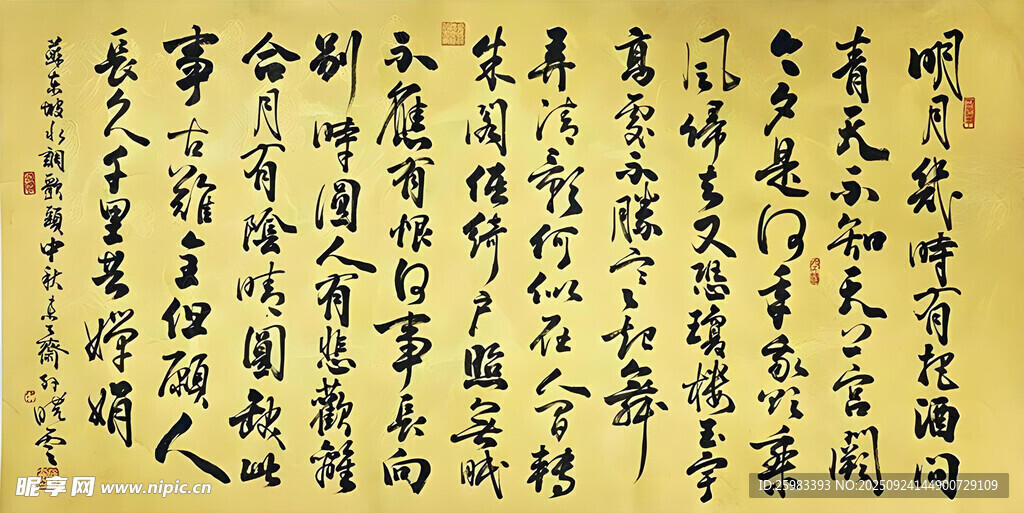 明月幾時有把酒問
青天不知天上宮闕
今夕是何年我欲乘
風歸去又恐瓊樓玉宇
高處不勝寒起舞
弄清影何似在人間轉
朱閣低綺戶照無眠
不應有恨何事長向
別時圓人有悲歡離
合月有陰晴圓缺此
事古難全但願人
長久千里共嬋娟
蘇東坡水調歌頭中秋 齋 曉雲
昵享网 www.nipic.cn
ID:25983393 NO:20250924144900729109